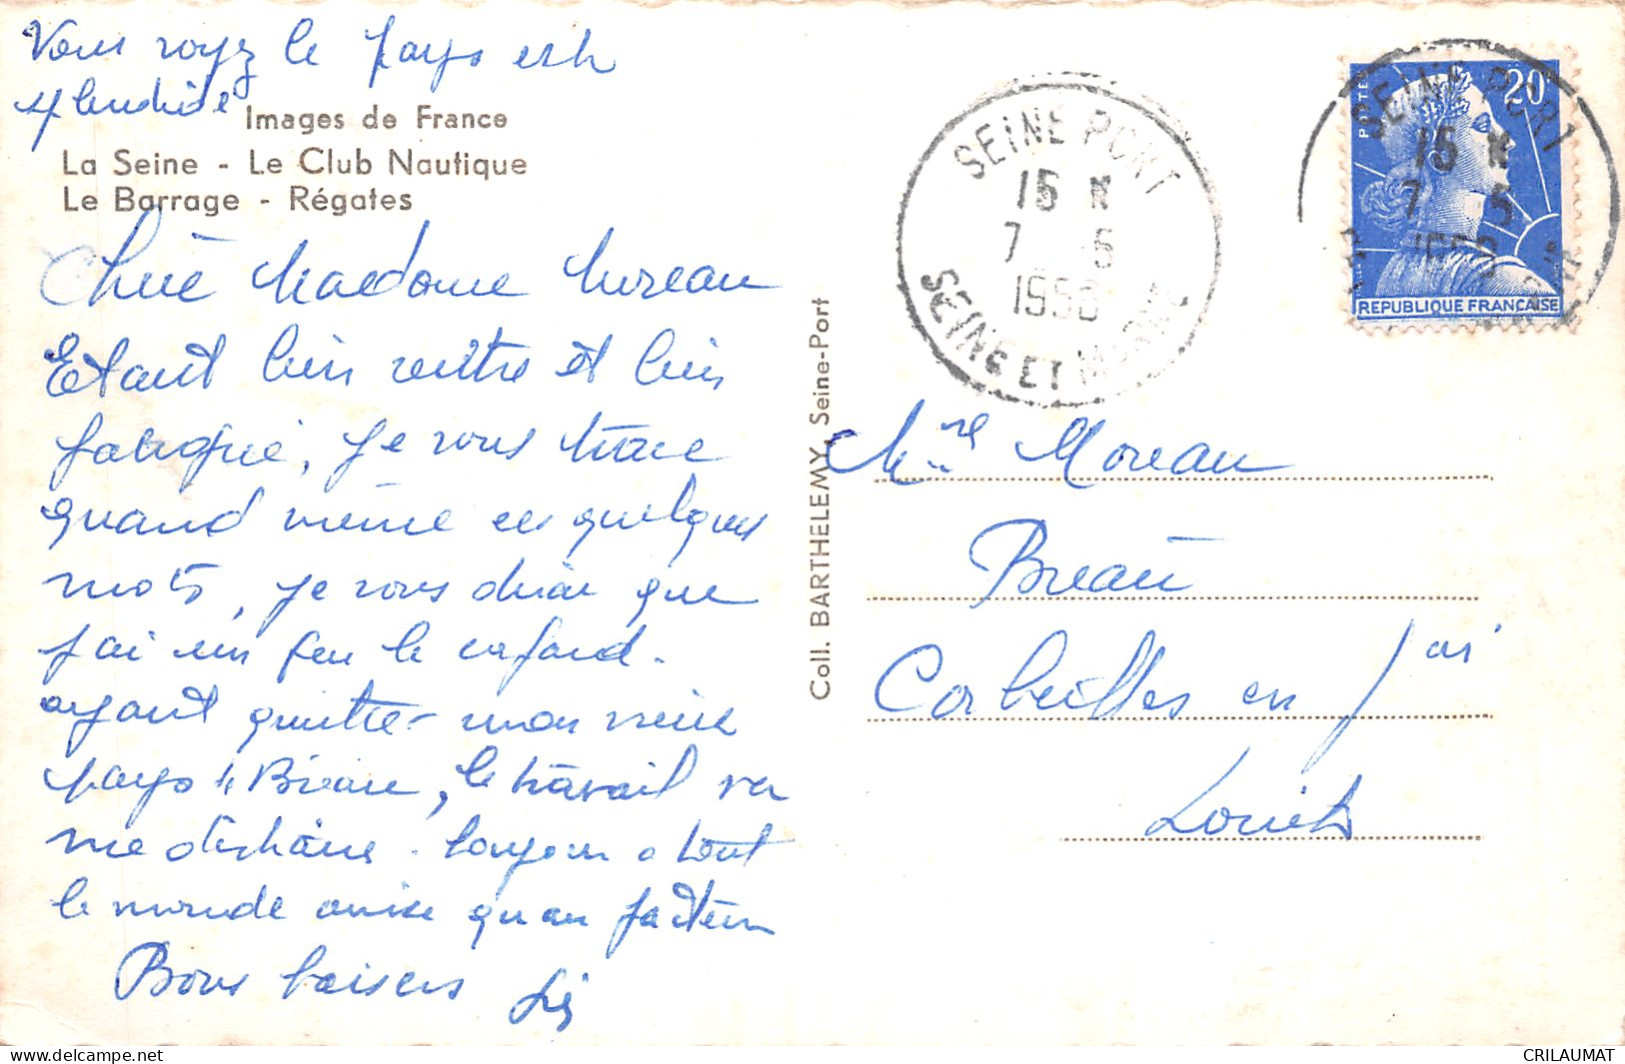 Vous voyez le pays est
splendide
Images de France
La Seine - Le Club Nautique
Le Barrage - Régates
Chère Madame Moreau
Etant bien rentré et bien
fatigué, je vous trace
quand même ces quelques
mots, je vous dirai que
j'ai un peu le cafard.
ayant quitté mon vieux
pays Bréau, le travail va
me distraire. bonjour a tout
le monde ainsi qu'au facteur
Bons baisers
Coll. BARTHELEMY, Seine-Port
SEINE PORT
15 H
7 5
1958
SEINE ET MARNE
POSTES
20F
REPUBLIQUE FRANÇAISE
SEINE PORT
15 H
7 5
1958
Mme Moreau
Bréau
Corbeilles en
Loiret
CRILAUMAT